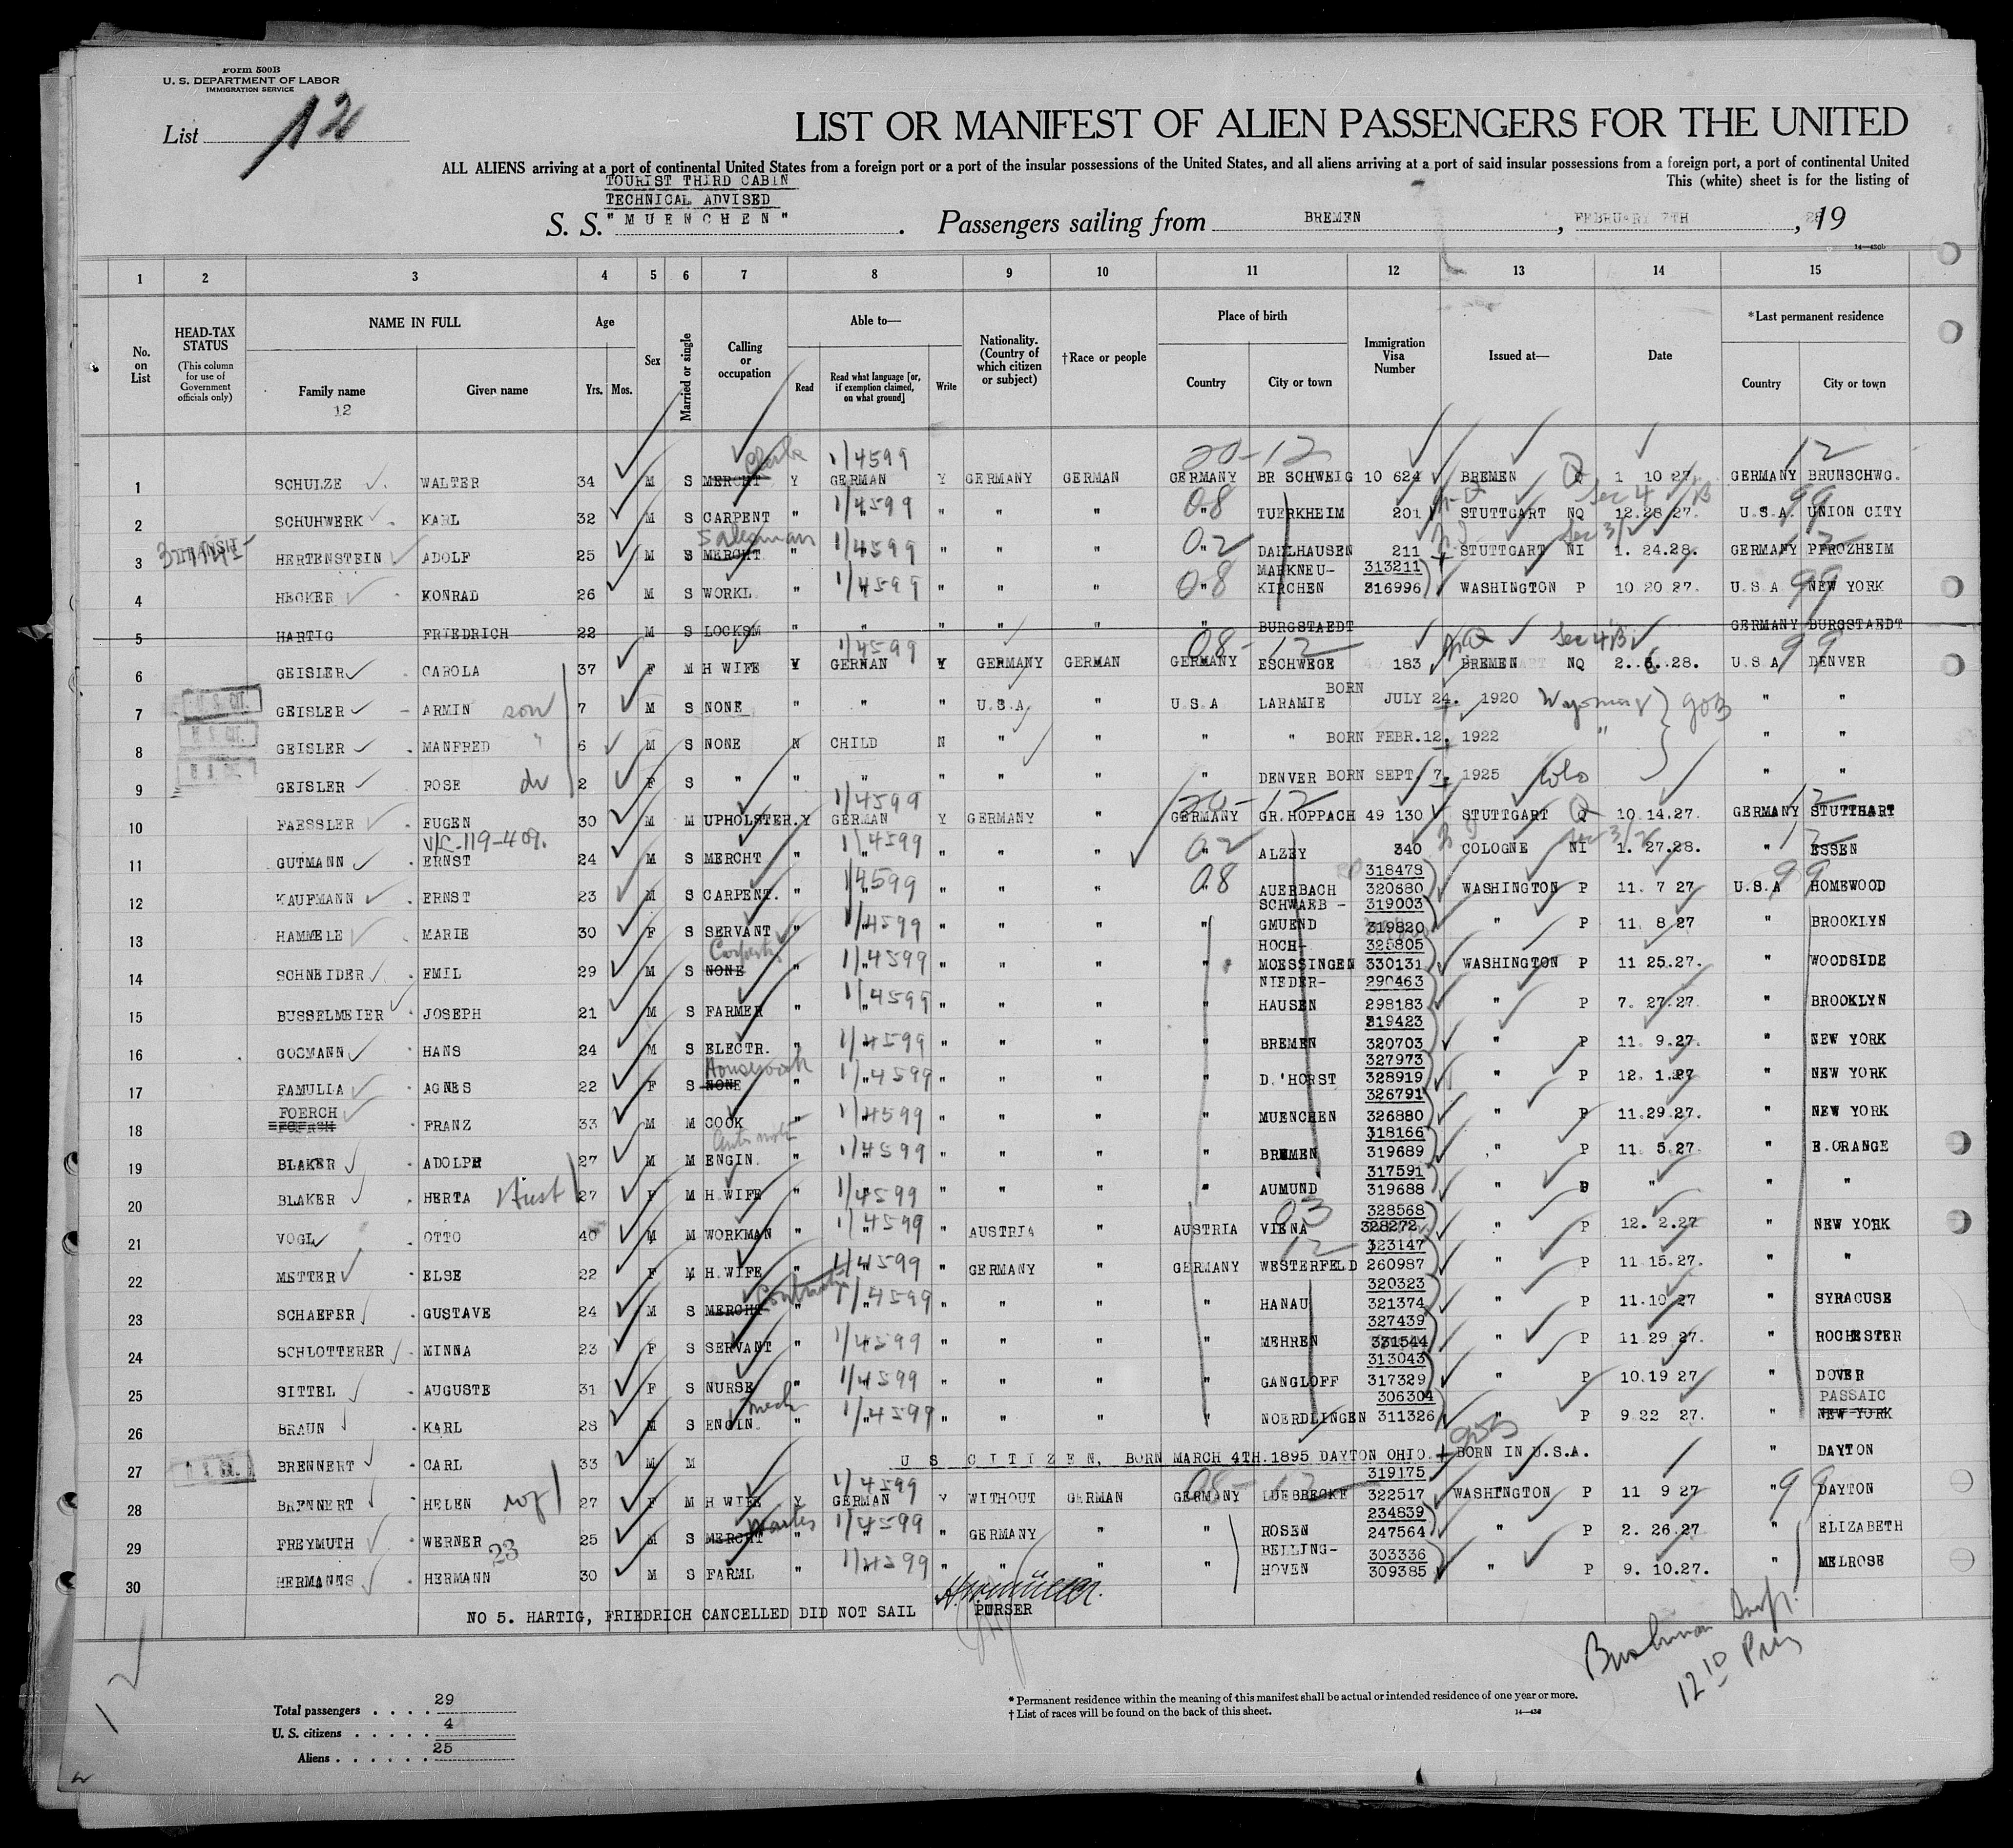 Form 500B
U. S. DEPARTMENT OF LABOR
IMMIGRATION SERVICE
List 12
LIST OR MANIFEST OF ALIEN PASSENGERS FOR THE UNITED
ALL ALIENS arriving at a port of continental United States from a foreign port or a port of the insular possessions of the United States, and all aliens arriving at a port of said insular possessions from a foreign port, a port of continental United
This (white) sheet is for the listing of
TOURIST THIRD CABIN
TECHNICAL ADVISED
S. S. "MUENCHEN". Passengers sailing from BREMEN, FEBRUARY 7TH, 1928
14—430b
1 2 3 4 5 6 7 8 9 10 11 12 13 14 15
No. on List
HEAD-TAX STATUS (This column for use of Government officials only)
NAME IN FULL Family name Given name
12
Age Yrs. Mos.
Sex
Married or single
Calling or occupation
Able to— Read Read what language [or, if exemption claimed, on what ground] Write
Nationality. (Country of which citizen or subject)
†Race or people
Place of birth Country City or town
Immigration Visa Number
Issued at—
Date
*Last permanent residence Country City or town
1 SCHULZE WALTER 34 M S MERCHT Clerk Y 1/4599 GERMAN Y GERMANY GERMAN 20-12 GERMANY BR SCHWEIG 10 624 BREMEN Q 1 10 27. 12 GERMANY BRUNSCHWG.
2 SCHUHWERK KARL 32 M S CARPENT " 1/4599 " " " " 08 " TUERKHEIM 201 STUTTGART NQ Sec 4 B 12.28 27. 99 U.S.A. UNION CITY
3 TRANSIT HERTENSTEIN ADOLF 25 M S MERCHT Salesman " 1/4599 " " " " 02 " DAHLHAUSEN 211 STUTTGART NI Sec 3/ 1. 24.28. 12 GERMANY PFROZHEIM
4 HECKER KONRAD 26 M S WORKL " 1/4599 " " " " 08 " MARKNEU-KIRCHEN 313211 316996 WASHINGTON P 10 20 27. 99 U.S A NEW YORK
5 HARTIG FRIEDRICH 22 M S LOCKSM " " " " " " BURGSTAEDT GERMANY BURGSTAEDT
6 GEISLER CAROLA 37 F M H WIFE Y 1/4599 GERMAN Y GERMANY GERMAN 08-12 GERMANY ESCHWEGE 183 BREMEN NQ Sec 4 B 2. 6. 28. 99 U.S.A DENVER
7 U. S. CIT. GEISLER ARMIN son 7 M S NONE " " " U.S.A " U.S.A LARAMIE BORN JULY 24. 1920 Wyoming gOB " "
8 U. S. CIT. GEISLER MANFRED " 6 M S NONE N CHILD N " " " " BORN FEBR.12. 1922 " " "
9 GEISLER ROSE 2 F S " " " " " " " DENVER BORN SEPT. 7. 1925 Colo " "
10 FAESSLER EUGEN 30 M M UPHOLSTER. Y 1/4599 GERMAN Y GERMANY " 20-12 GERMANY GR.HOPPACH 49 130 STUTTGART Q 10 14.27. 12 GERMANY STUTTGART
11 GUTMANN V/L-119-409. ERNST 24 M S MERCHT " 1/4599 " " " " 02 " ALZEY 340 COLOGNE NI 1. 27.28. 12 " ESSEN
12 KAUFMANN ERNST 23 M S CARPENT. " 1/4599 " " " " 08 " AUERBACH 318478 320680 WASHINGTON P 11. 7 27 99 U.S.A HOMEWOOD
13 HAMMELE MARIE 30 F S SERVANT " 1/4599 " " " " " SCHWAEB - GMUEND 319003 319820 " P 11. 8 27 " BROOKLYN
14 SCHNEIDER EMIL 29 M S NONE " 1/4599 " " " " " HOCH-MOESSINGEN 325805 330131 WASHINGTON P 11 25.27. " WOODSIDE
15 BUSSELMEIER JOSEPH 21 M S FARMER " 1/4599 " " " " " NIEDER-HAUSEN 290463 298183 " P 7. 27.27. " BROOKLYN
16 GOSMANN HANS 24 M S ELECTR. " 1/4599 " " " " " BREMEN 319423 320703 " P 11. 9.27. " NEW YORK
17 FAMULLA AGNES 22 F S NONE Housework " 1/4599 " " " " " D.'HORST 327973 328919 " P 12. 1.27 " NEW YORK
18 FOERCH FRANZ 33 M M COOK " 1/4599 " " " " " MUENCHEN 326791 326880 " P 11.29.27. " NEW YORK
19 BLAKER ADOLPH 27 M M ENGIN. " 1/4599 " " " " " BREMEN 318166 319689 " P 11. 5.27. " E.ORANGE
20 BLAKER HERTA 27 F M H.WIFE " 1/4599 " " " " " AUMUND 317591 319688 " P " " "
21 VOGL OTTO 40 M M WORKMAN " 1/4599 " " AUSTRIA " AUSTRIA 03 VIENA 328568 328272 " P 12. 2.27 " NEW YORK
22 METTER ELSE 22 F M H.WIFE " 1/4599 " " GERMANY " GERMANY 12 WESTERFELD 323147 260987 " P 11 15.27. " "
23 SCHAEFER GUSTAVE 24 M S MERCHT " 1/4599 " " " " " HANAU 320323 321374 " P 11.10 27 " SYRACUSE
24 SCHLOTTERER MINNA 23 F S SERVANT " 1/4599 " " " " " MEHREN 327439 331544 " P 11 29 27. " ROCHESTER
25 SITTEL AUGUSTE 31 F S NURSE " 1/4599 " " " " " GANGLOFF 313043 317329 " P 10.19 27 " DOVER
26 BRAUN KARL 28 M S ENGIN. mech " 1/4599 " " " " " NOERDLINGEN 306304 311326 " P 9 22 27. " PASSAIC NEW YORK
27 BRENNERT CARL 33 M M U S CITIZEN, BORN MARCH 4TH.1895 DAYTON OHIO. BORN IN U.S.A. " DAYTON
28 BRENNERT HELEN wf 27 F M H WIFE Y 1/4599 GERMAN Y WITHOUT GERMAN 08-12 GERMANY LUEBBECKE 319175 322517 WASHINGTON P 11 9 27 99 " DAYTON
29 FREYMUTH WERNER 25 M S MERCHT " 1/4599 " " GERMANY " " ROSEN 234839 247564 " P 2. 26.27 " ELIZABETH
30 HERMANNS 23 HERMANN 30 M S FARML " 1/4599 " " " " " BELLING-HOVEN 303336 309385 " P 9. 10.27. " MELROSE
NO 5. HARTIG, FRIEDRICH CANCELLED DID NOT SAIL PURSER
Bushman Insp.
12 10 Pm
12
Total passengers . . . . 29
U. S. citizens . . . . . 4
Aliens . . . . . . 25
* Permanent residence within the meaning of this manifest shall be actual or intended residence of one year or more.
† List of races will be found on the back of this sheet.
14—430